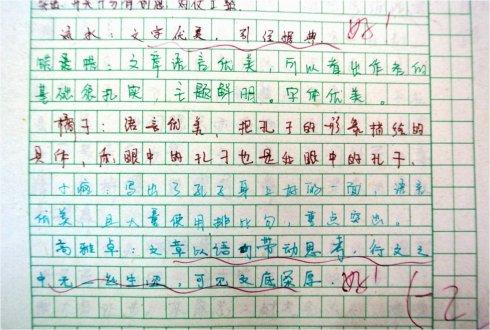 流水：文字优美，引经据典。好！
：文章语言优美，可以看出作者的
基础很扎实，主题鲜明。字体优美。
橘子：语言优美，把孔子的形象描绘的
具体，你眼中的孔子也是我眼中的孔子。
子病：写出了孔子身上好的一面，语言
优美，且大量使用排比句，重点突出。
高雅卓：文章以语句带动思考，行文之
中无一丝生涩，可见文底深厚。好！
-2